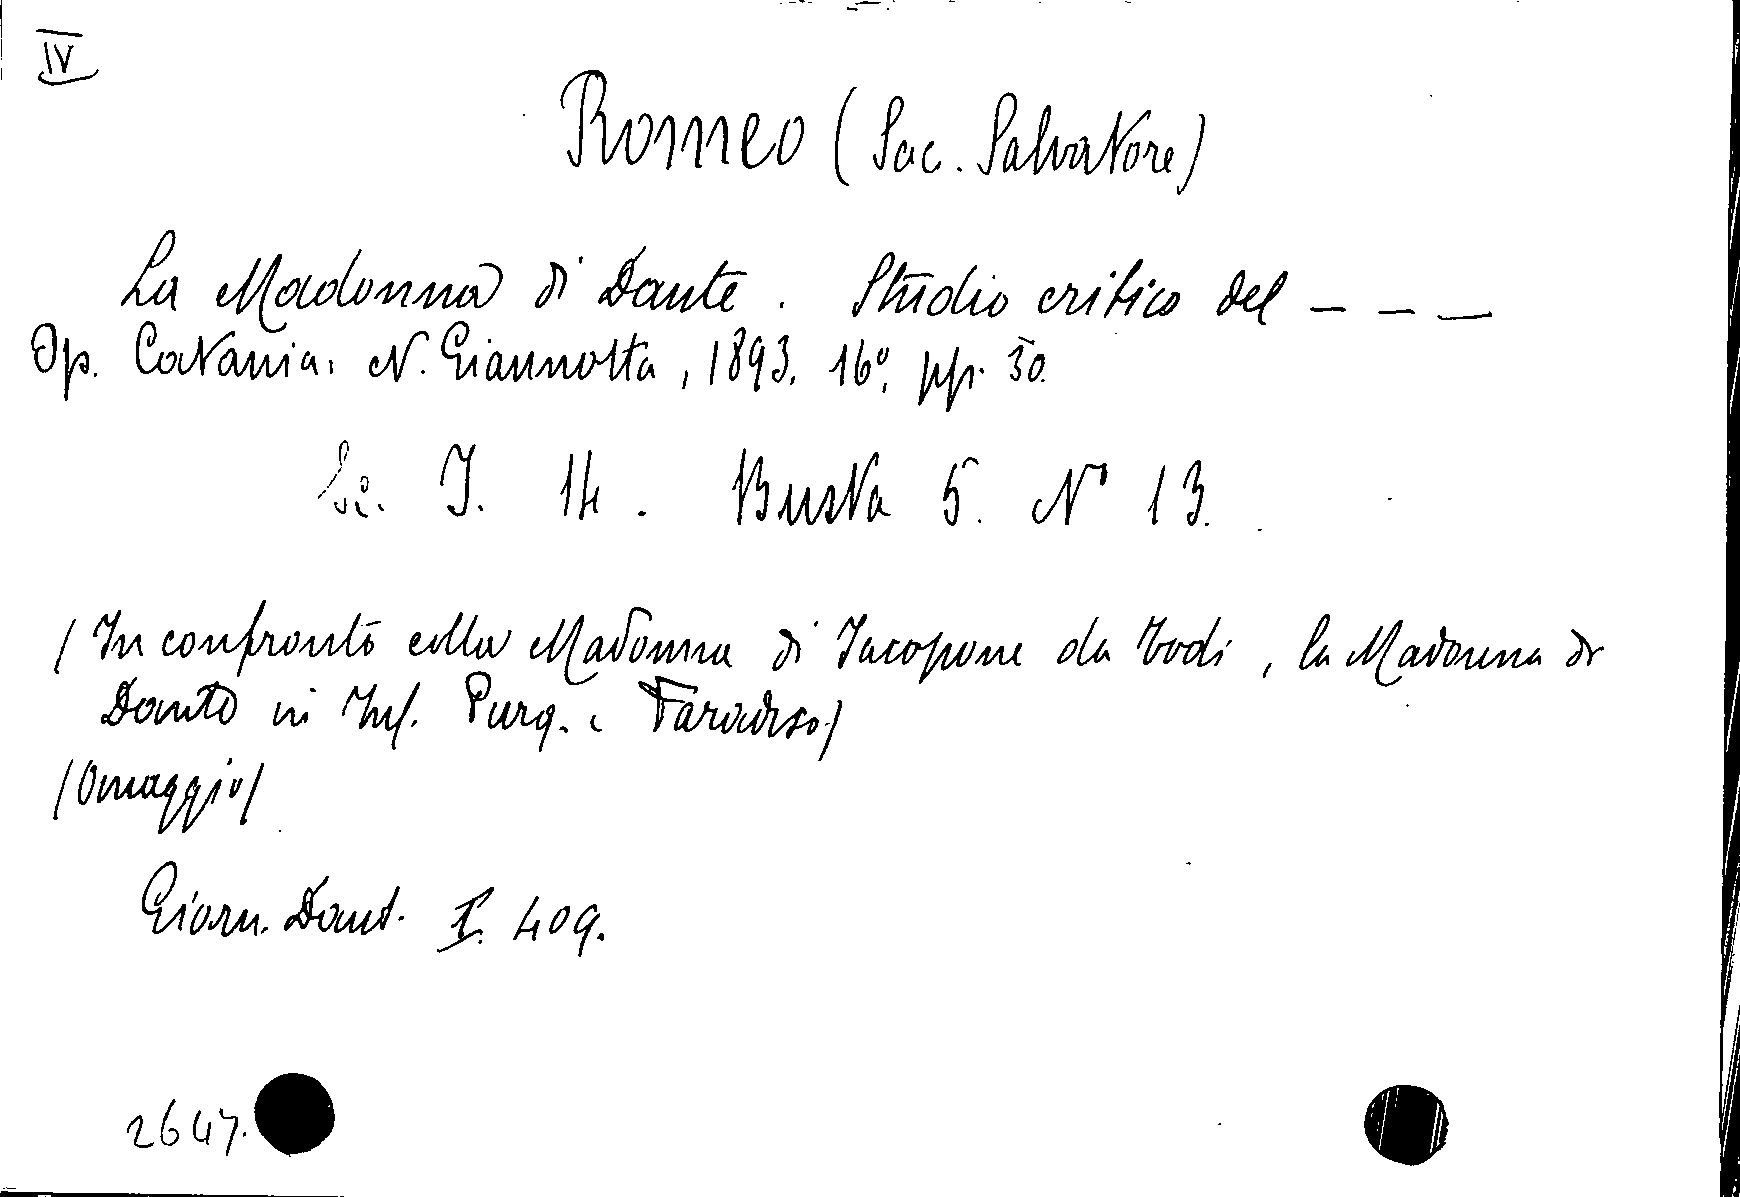 IV
Romeo (Sac. Salvatore)
La Madonna di Dante. Studio critico del - - -
Op. Catania, N. Giannotta, 1893. 16°, pp. 50.
I. 14. Busta 5. N° 13.
(In confronto colla Madonna di Jacopone da Todi, la Madonna di
Dante in Inf. Purg. e Paradiso)
(Omaggio)
Giorn. Dant. I. 409.
2647.